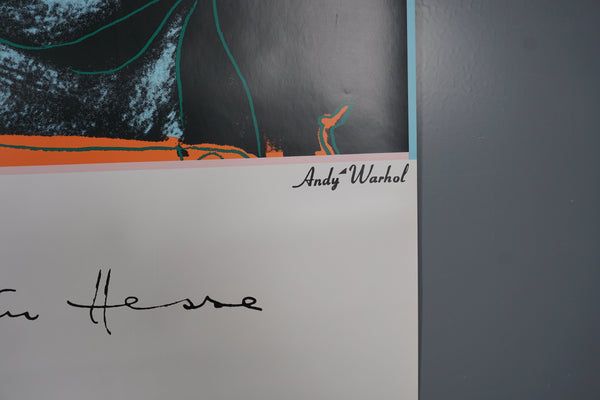 Andy Warhol
Hesse